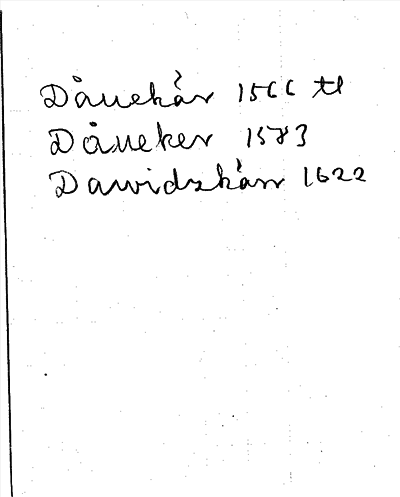 Dånekår 1566 tl
Dåneker 1583
Dawidzkårr 1622